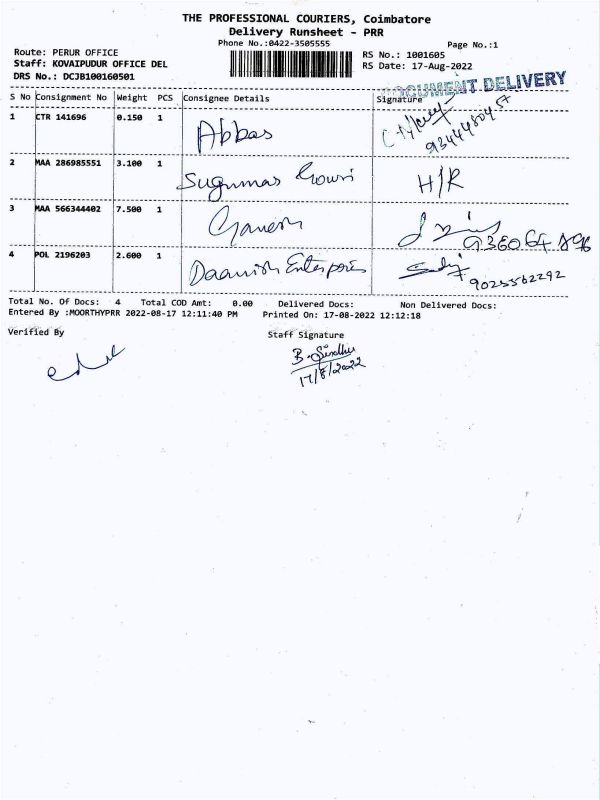 THE PROFESSIONAL COURIERS, Coimbatore
Delivery Runsheet - PRR
Phone No.:0422-3505555
Page No.:1
Route: PERUR OFFICE
Staff: KOVAIPUDUR OFFICE DEL
DRS No.: DCJB100160501
RS No.: 1001605
RS Date: 17-Aug-2022
DOCUMENT DELIVERY
S No Consignment No Weight PCS Consignee Details Signature
1 CTR 141696 0.150 1 Abbas
2 MAA 286985551 3.100 1 Sugumar Gowri H/R
3 MAA 566344402 7.500 1 Ganesh
4 POL 2196203 2.600 1 Daanish Enterpries 9025562292
Total No. Of Docs: 4 Total COD Amt: 0.00 Delivered Docs: Non Delivered Docs:
Entered By :MOORTHYPRR 2022-08-17 12:11:40 PM Printed On: 17-08-2022 12:12:18
Verified By Staff Signature
B. Sindhu
17/8/2022